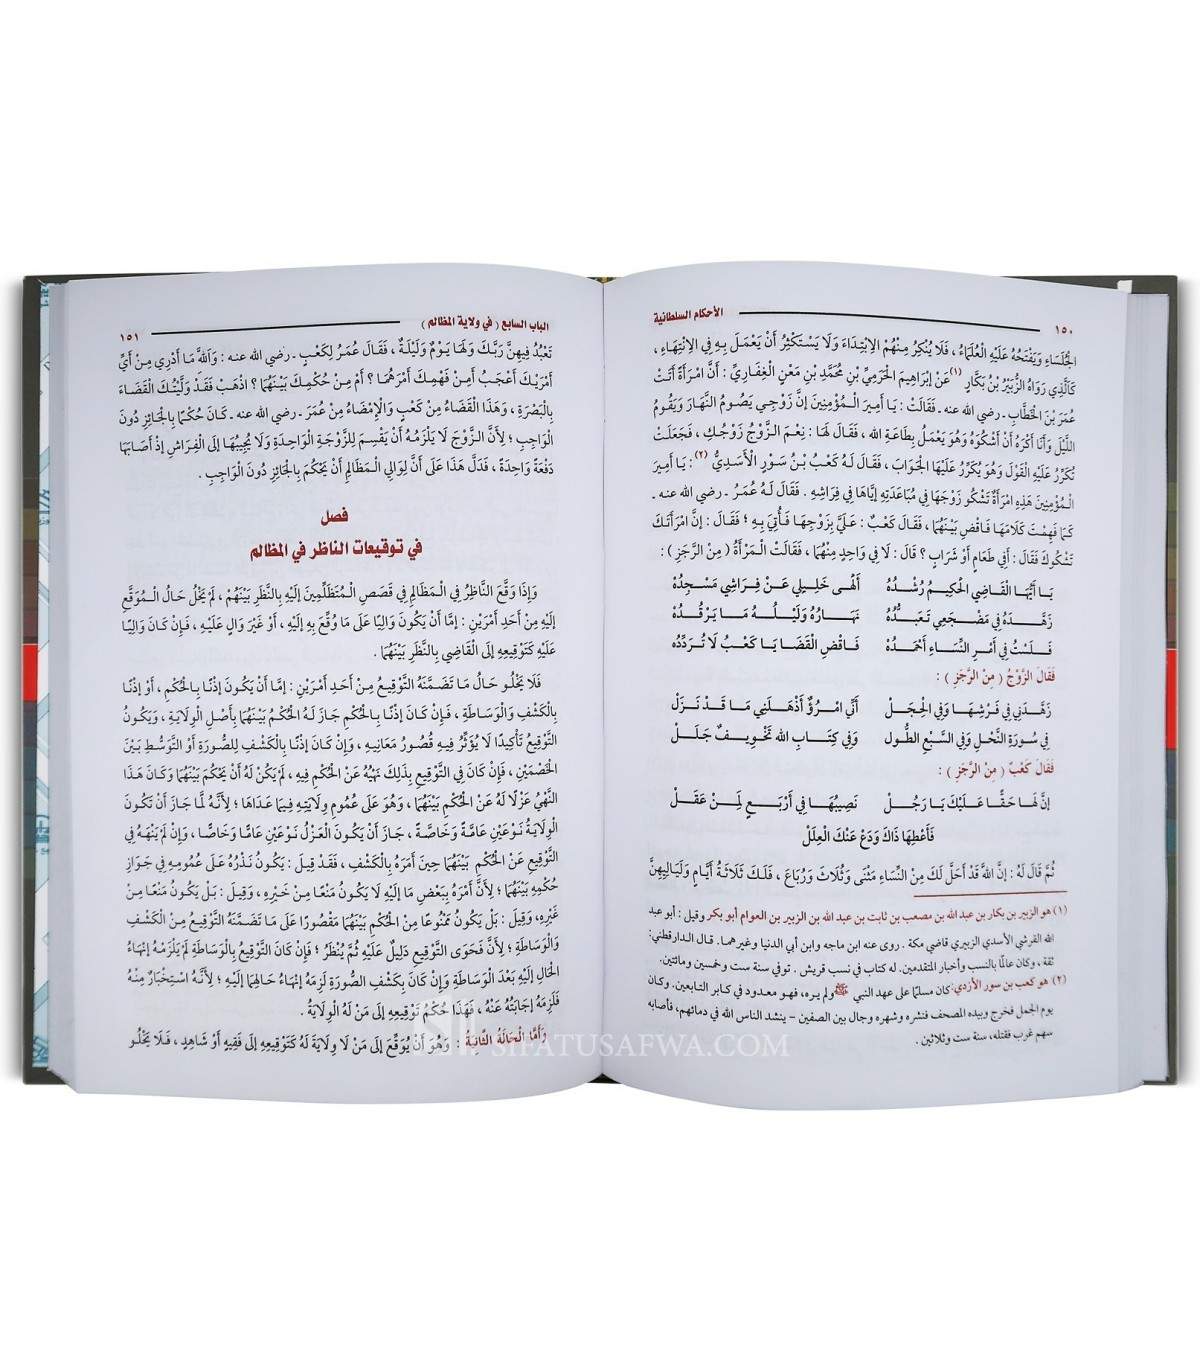 ١٥٠
الأحكام السلطانية
الجُلَسَاءِ وَيَفْتَحُهُ عَلَيْهِ الْعُلَمَاءُ ، فَلَا يُنْكِرُ مِنْهُمْ الِابْتِدَاءَ وَلَا يَسْتَكْثِرُ أَنْ يَعْمَلَ بِهِ فِي الِانْتِهَاءِ ،
كَالَّذِي رَوَاهُ الزُّبَيْرُ بْنُ بَكَّارٍ (١) عَنْ إِبْرَاهِيمَ الْحَرَمِيِّ بْنِ مُحَمَّدِ بْنِ مَعْنٍ الْغِفَارِيِّ : أَنَّ امْرَأَةً أَتَتْ
عُمَرَ بْنَ الْخَطَّابِ ـ رضي الله عنه ـ فَقَالَتْ : يَا أَمِيرَ الْمُؤْمِنِينَ إِنَّ زَوْجِي يَصُومُ النَّهَارَ وَيَقُومُ
اللَّيْلَ وَأَنَا أَكْرَهُ أَنْ أَشْكُوَهُ وَهُوَ يَعْمَلُ بِطَاعَةِ الله ، فَقَالَ لَهَا : نِعْمَ الزَّوْجُ زَوْجُكِ ، فَجَعَلَتْ
تُكَرِّرُ عَلَيْهِ الْقَوْلَ وَهُوَ يُكَرِّرُ عَلَيْهَا الْجَوَابَ ، فَقَالَ لَهُ كَعْبُ بْنُ سَوْرٍ الْأَسَدِيُّ (٢) : يَا أَمِيرَ
الْمُؤْمِنِينَ هَذِهِ امْرَأَةٌ تَشْكُو زَوْجَهَا فِي مُبَاعَدَتِهِ إِيَّاهَا فِي فِرَاشِهِ . فَقَالَ لَهُ عُمَرُ ـ رضي الله عنه ـ
كَمَا فَهِمْتَ كَلَامَهَا فَاقْضِ بَيْنَهُمَا ، فَقَالَ كَعْبٌ : عَلَيَّ بِزَوْجِهَا فَأُتِيَ بِهِ ؛ فَقَالَ : إِنَّ امْرَأَتَكَ
تَشْكُوكَ فَقَالَ : أَفِي طَعَامٍ أَوْ شَرَابٍ ؟ قَالَ : لَا فِي وَاحِدٍ مِنْهُمَا ، فَقَالَتْ الْمَرْأَةُ ( مِنْ الرَّجَزِ ) :
يَا أَيُّهَا الْقَاضِي الْحَكِيمُ رُشْدُهُ أَلْهَى خَلِيلِي عَنْ فِرَاشِي مَسْجِدُهُ
زَهَّدَهُ فِي مَضْجَعِي تَعَبُّدُهُ نَهَارُهُ وَلَيْلُهُ مَا يَرْقُدُهُ
فَلَسْتُ فِي أَمْرِ النِّسَاءِ أَحْمَدُهُ فَاقْضِ الْقَضَا يَا كَعْبُ لَا تُرَدِّدُه
فَقَالَ الزَّوْجُ ( مِنْ الرَّجَزِ ) :
زَهَّدَنِي فِي فَرْشِهَا وَفِي الْحِجَلْ أَنِّي امْرُؤٌ أَذْهَلَنِي مَا قَدْ نَزَلْ
فِي سُورَةِ النَّحْلِ وَفِي السَّبْعِ الطُّول وَفِي كِتَابِ الله تَخْوِيفٌ جَلَلْ
فَقَالَ كَعْبٌ ( مِنْ الرَّجَزِ ) :
إِنَّ لَهَا حَقًّا عَلَيْكَ يَا رَجُلْ نَصِيبُهَا فِي أَرْبَعٍ لِمَنْ عَقَلْ
فَأَعْطِهَا ذَاكَ وَدَعْ عَنْكَ الْعِلَلْ
ثُمَّ قَالَ لَهُ : إِنَّ اللهَ قَدْ أَحَلَّ لَكَ مِنَ النِّسَاءِ مَثْنَى وَثُلَاثَ وَرُبَاعَ ، فَلَكَ ثَلَاثَةُ أَيَّامٍ وَلَيَالِيهِنَّ
(١) هو الزبير بن بكار بن عبد الله بن مصعب بن ثابت بن عبد الله بن الزبير بن العوام أبو بكر وقيل : أبو عبد
الله القرشي الأسدي الزبيري قاضي مكة . روى عنه ابن ماجه وابن أبي الدنيا وغيرهما . قال الدارقطني:
ثقة ، وكان عالمًا بالنسب وأخبار المتقدمين. له كتاب في نسب قريش . توفي سنة ست وخمسين ومائتين.
(٢) هو كعب بن سور الأزدي: كان مسلمًا على عهد النبي ﷺ ولم يره، فهو معدود في كبار التابعين. وكان
يوم الجمل فخرج وبيده المصحف فنشره وشهره وجال بين الصفين – ينشد الناس الله في دمائهم، فأصابه
سهم غرب فقتله، سنة ست وثلاثين .
الباب السابع ( في ولاية المظالم )
١٥١
تَعْبُدُ فِيهِنَّ رَبَّكَ وَلَهَا يَوْمٌ وَلَيْلَةٌ ، فَقَالَ عُمَرُ لِكَعْبٍ ـ رضي الله عنه : وَاللهِ مَا أَدْرِي مِنْ أَيِّ
أَمْرَيْكَ أَعْجَبُ أَمِنْ فَهْمِكَ أَمْرَهُمَا ؟ أَمْ مِنْ حُكْمِكَ بَيْنَهُمَا ؟ اذْهَبْ فَقَدْ وَلَّيْتُكَ الْقَضَاءَ
بِالْبَصْرَةِ ، وَهَذَا الْقَضَاءُ مِنْ كَعْبٍ وَالْإِمْضَاءُ مِنْ عُمَرَ ـ رضي الله عنه ـ كَانَ حُكْمًا بِالْجَائِزِ دُونَ
الْوَاجِبِ ؛ لِأَنَّ الزَّوْجَ لَا يَلْزَمُهُ أَنْ يَقْسِمَ لِلزَّوْجَةِ الْوَاحِدَةِ وَلَا يُجِيبُهَا إِلَى الْفِرَاشِ إِذْ أَصَابَهَا
دَفْعَةً وَاحِدَةً ، فَدَلَّ هَذَا عَلَى أَنَّ لِوَالِي الْمَظَالِمِ أَنْ يَحْكُمَ بِالْجَائِزِ دُونَ الْوَاجِبِ .
فصل
في توقيعات الناظر في المظالم
وَإِذَا وَقَّعَ النَّاظِرُ فِي الْمَظَالِمِ فِي قَصَصِ الْمُتَظَلِّمِينَ إِلَيْهِ بِالنَّظَرِ بَيْنَهُمْ ، لَمْ يَخْلُ حَالُ الْمُوَقَّعِ
إِلَيْهِ مِنْ أَحَدِ أَمْرَيْنِ : إِمَّا أَنْ يَكُونَ وَالِيًا عَلَى مَا وُقِّعَ بِهِ إِلَيْهِ ، أَوْ غَيْرَ وَالٍ عَلَيْهِ ، فَإِنْ كَانَ وَالِيًا
عَلَيْهِ كَتَوْقِيعِهِ إِلَى الْقَاضِي بِالنَّظَرِ بَيْنَهُمَا .
فَلَا يَخْلُو حَالُ مَا تَضَمَّنَهُ التَّوْقِيعُ مِنْ أَحَدِ أَمْرَيْنِ : إِمَّا أَنْ يَكُونَ إِذْنًا بِالْحُكْمِ ، أَوْ إِذْنًا
بِالْكَشْفِ وَالْوَسَاطَةِ ، فَإِنْ كَانَ إِذْنًا بِالْحُكْمِ جَازَ لَهُ الْحُكْمُ بَيْنَهُمَا بِأَصْلِ الْوِلَايَةِ ، وَيَكُونُ
التَّوْقِيعُ تَأْكِيدًا لَا يُؤَثِّرُ فِيهِ قُصُورُ مَعَانِيهِ ، وَإِنْ كَانَ إِذْنًا بِالْكَشْفِ لِلصُّورَةِ أَوْ التَّوَسُّطِ بَيْنَ
الْخَصْمَيْنِ ، فَإِنْ كَانَ فِي التَّوْقِيعِ بِذَلِكَ نَهْيُهُ عَنْ الْحُكْمِ فِيهِ ، لَمْ يَكُنْ لَهُ أَنْ يَحْكُمَ بَيْنَهُمَا وَكَانَ هَذَا
النَّهْيُ عَزْلًا لَهُ عَنْ الْحُكْمِ بَيْنَهُمَا ، وَهُوَ عَلَى عُمُومِ وِلَايَتِهِ فِيمَا عَدَاهَا ؛ لِأَنَّهُ لَمَّا جَازَ أَنْ تَكُونَ
الْوِلَايَةُ نَوْعَيْنِ عَامَّةً وَخَاصَّةً ، جَازَ أَنْ يَكُونَ الْعَزْلُ نَوْعَيْنِ عَامًّا وَخَاصًّا ، وَإِنْ لَمْ يَنْهَهُ فِي
التَّوْقِيعِ عَنْ الْحُكْمِ بَيْنَهُمَا حِينَ أَمَرَهُ بِالْكَشْفِ ، فَقَدْ قِيلَ : يَكُونُ نَذْرُهُ عَلَى عُمُومِهِ فِي جَوَازِ
حُكْمِهِ بَيْنَهُمَا ؛ لِأَنَّ أَمْرَهُ بِبَعْضِ مَا إِلَيْهِ لَا يَكُونُ مَنْعًا مِنْ خَيْرِهِ، وَقِيلَ : بَلْ يَكُونُ مَنْعًا مِنْ
غَيْرِهِ، وَقِيلَ : بَلْ يَكُونُ مَمْنُوعًا مِنْ الْحُكْمِ بَيْنَهُمَا مَقْصُورًا عَلَى مَا تَضَمَّنَهُ التَّوْقِيعُ مِنْ الْكَشْفِ
وَالْوَسَاطَةِ ؛ لِأَنَّ فَحْوَى التَّوْقِيعِ دَلِيلٌ عَلَيْهِ ثُمَّ يُنْظَرُ ؛ فَإِنْ كَانَ التَّوْقِيعُ بِالْوَسَاطَةِ لَمْ يَلْزَمْهُ إِنْهَاءُ
الْحَالِ إِلَيْهِ بَعْدَ الْوَسَاطَةِ وَإِنْ كَانَ بِكَشْفِ الصُّورَةِ لَزِمَهُ إِنْهَاءُ حَالِهِمَا إِلَيْهِ ؛ لِأَنَّهُ اسْتِخْبَارٌ مِنْهُ
فَلَزِمَهُ إِجَابَتُهُ عَنْهُ ، فَهَذَا حُكْمُ تَوْقِيعِهِ إِلَى مَنْ لَهُ الْوِلَايَةُ .
وَأَمَّا الْحَالَةُ الثَّانِيَةُ : وَهُوَ أَنْ يُوَقِّعَ إِلَى مَنْ لَا وِلَايَةَ لَهُ كَتَوْقِيعِهِ إِلَى فَقِيهٍ أَوْ شَاهِدٍ ، فَلَا يَخْلُو
SIFATUSAFWA.COM